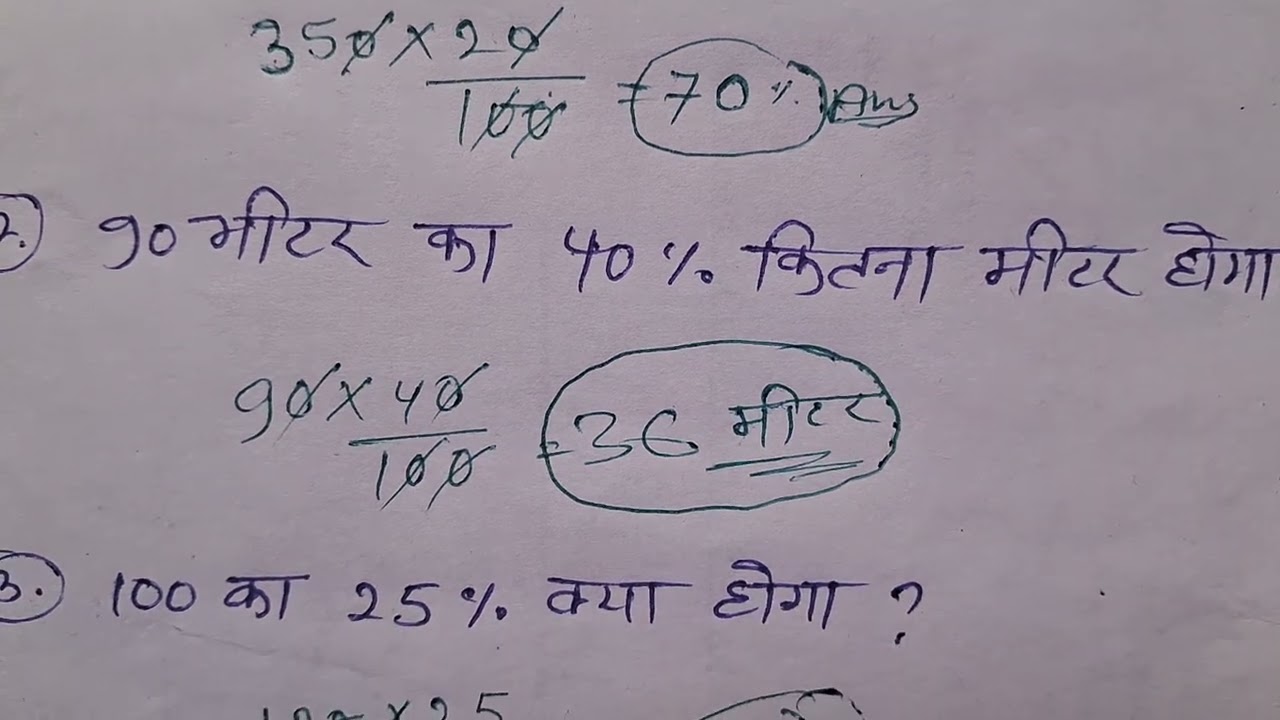 350 × 20
100
= 70 % Ans
2. 90 मीटर का 40 % कितना मीटर होगा
90 × 40
100
= 36 मीटर
3. 100 का 25 % क्या होगा ?
100 × 25